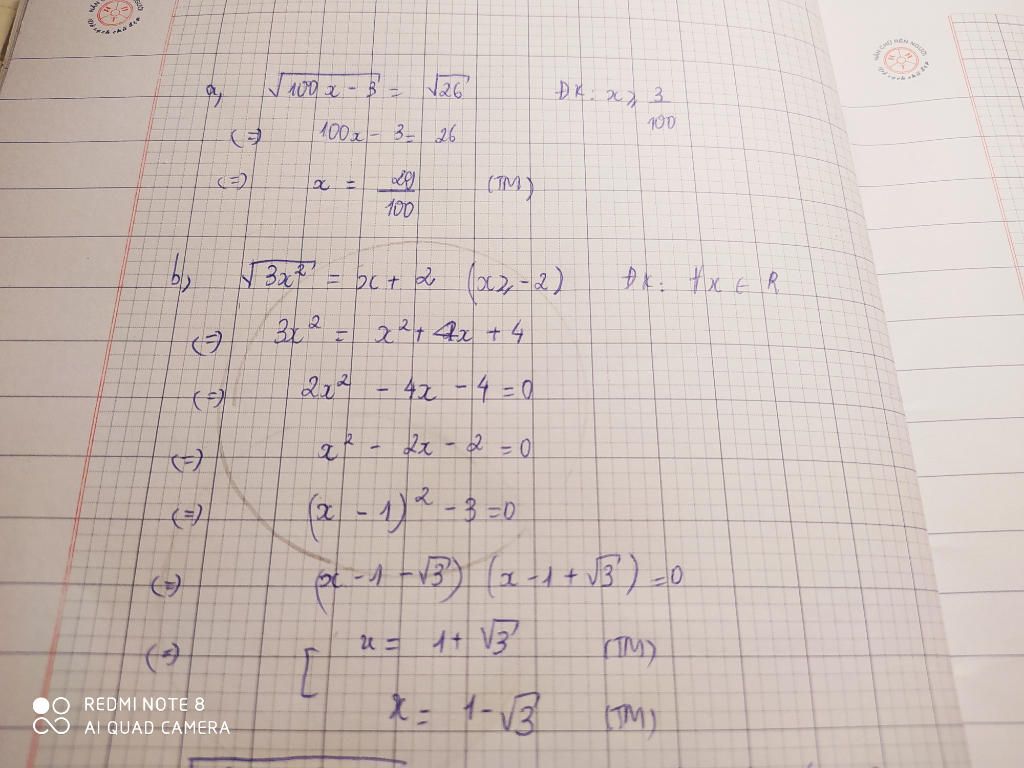 NÂN CHỮ NÊN NGƯỜI
a, √(100x - 3) = √26 ĐK: x ≥ 3/100
(=) 100x - 3 = 26
(=) x = 29/100 (TM)
b, √(3x²) = x + 2 (x ≥ -2) ĐK: ∀x ∈ R
(=) 3x² = x² + 4x + 4
(=) 2x² - 4x - 4 = 0
(=) x² - 2x - 2 = 0
(=) (x - 1)² - 3 = 0
(=) (x - 1 - √3) (x - 1 + √3) = 0
(=) [ x = 1 + √3 (TM)
x = 1 - √3 (TM)
REDMI NOTE 8
AI QUAD CAMERA